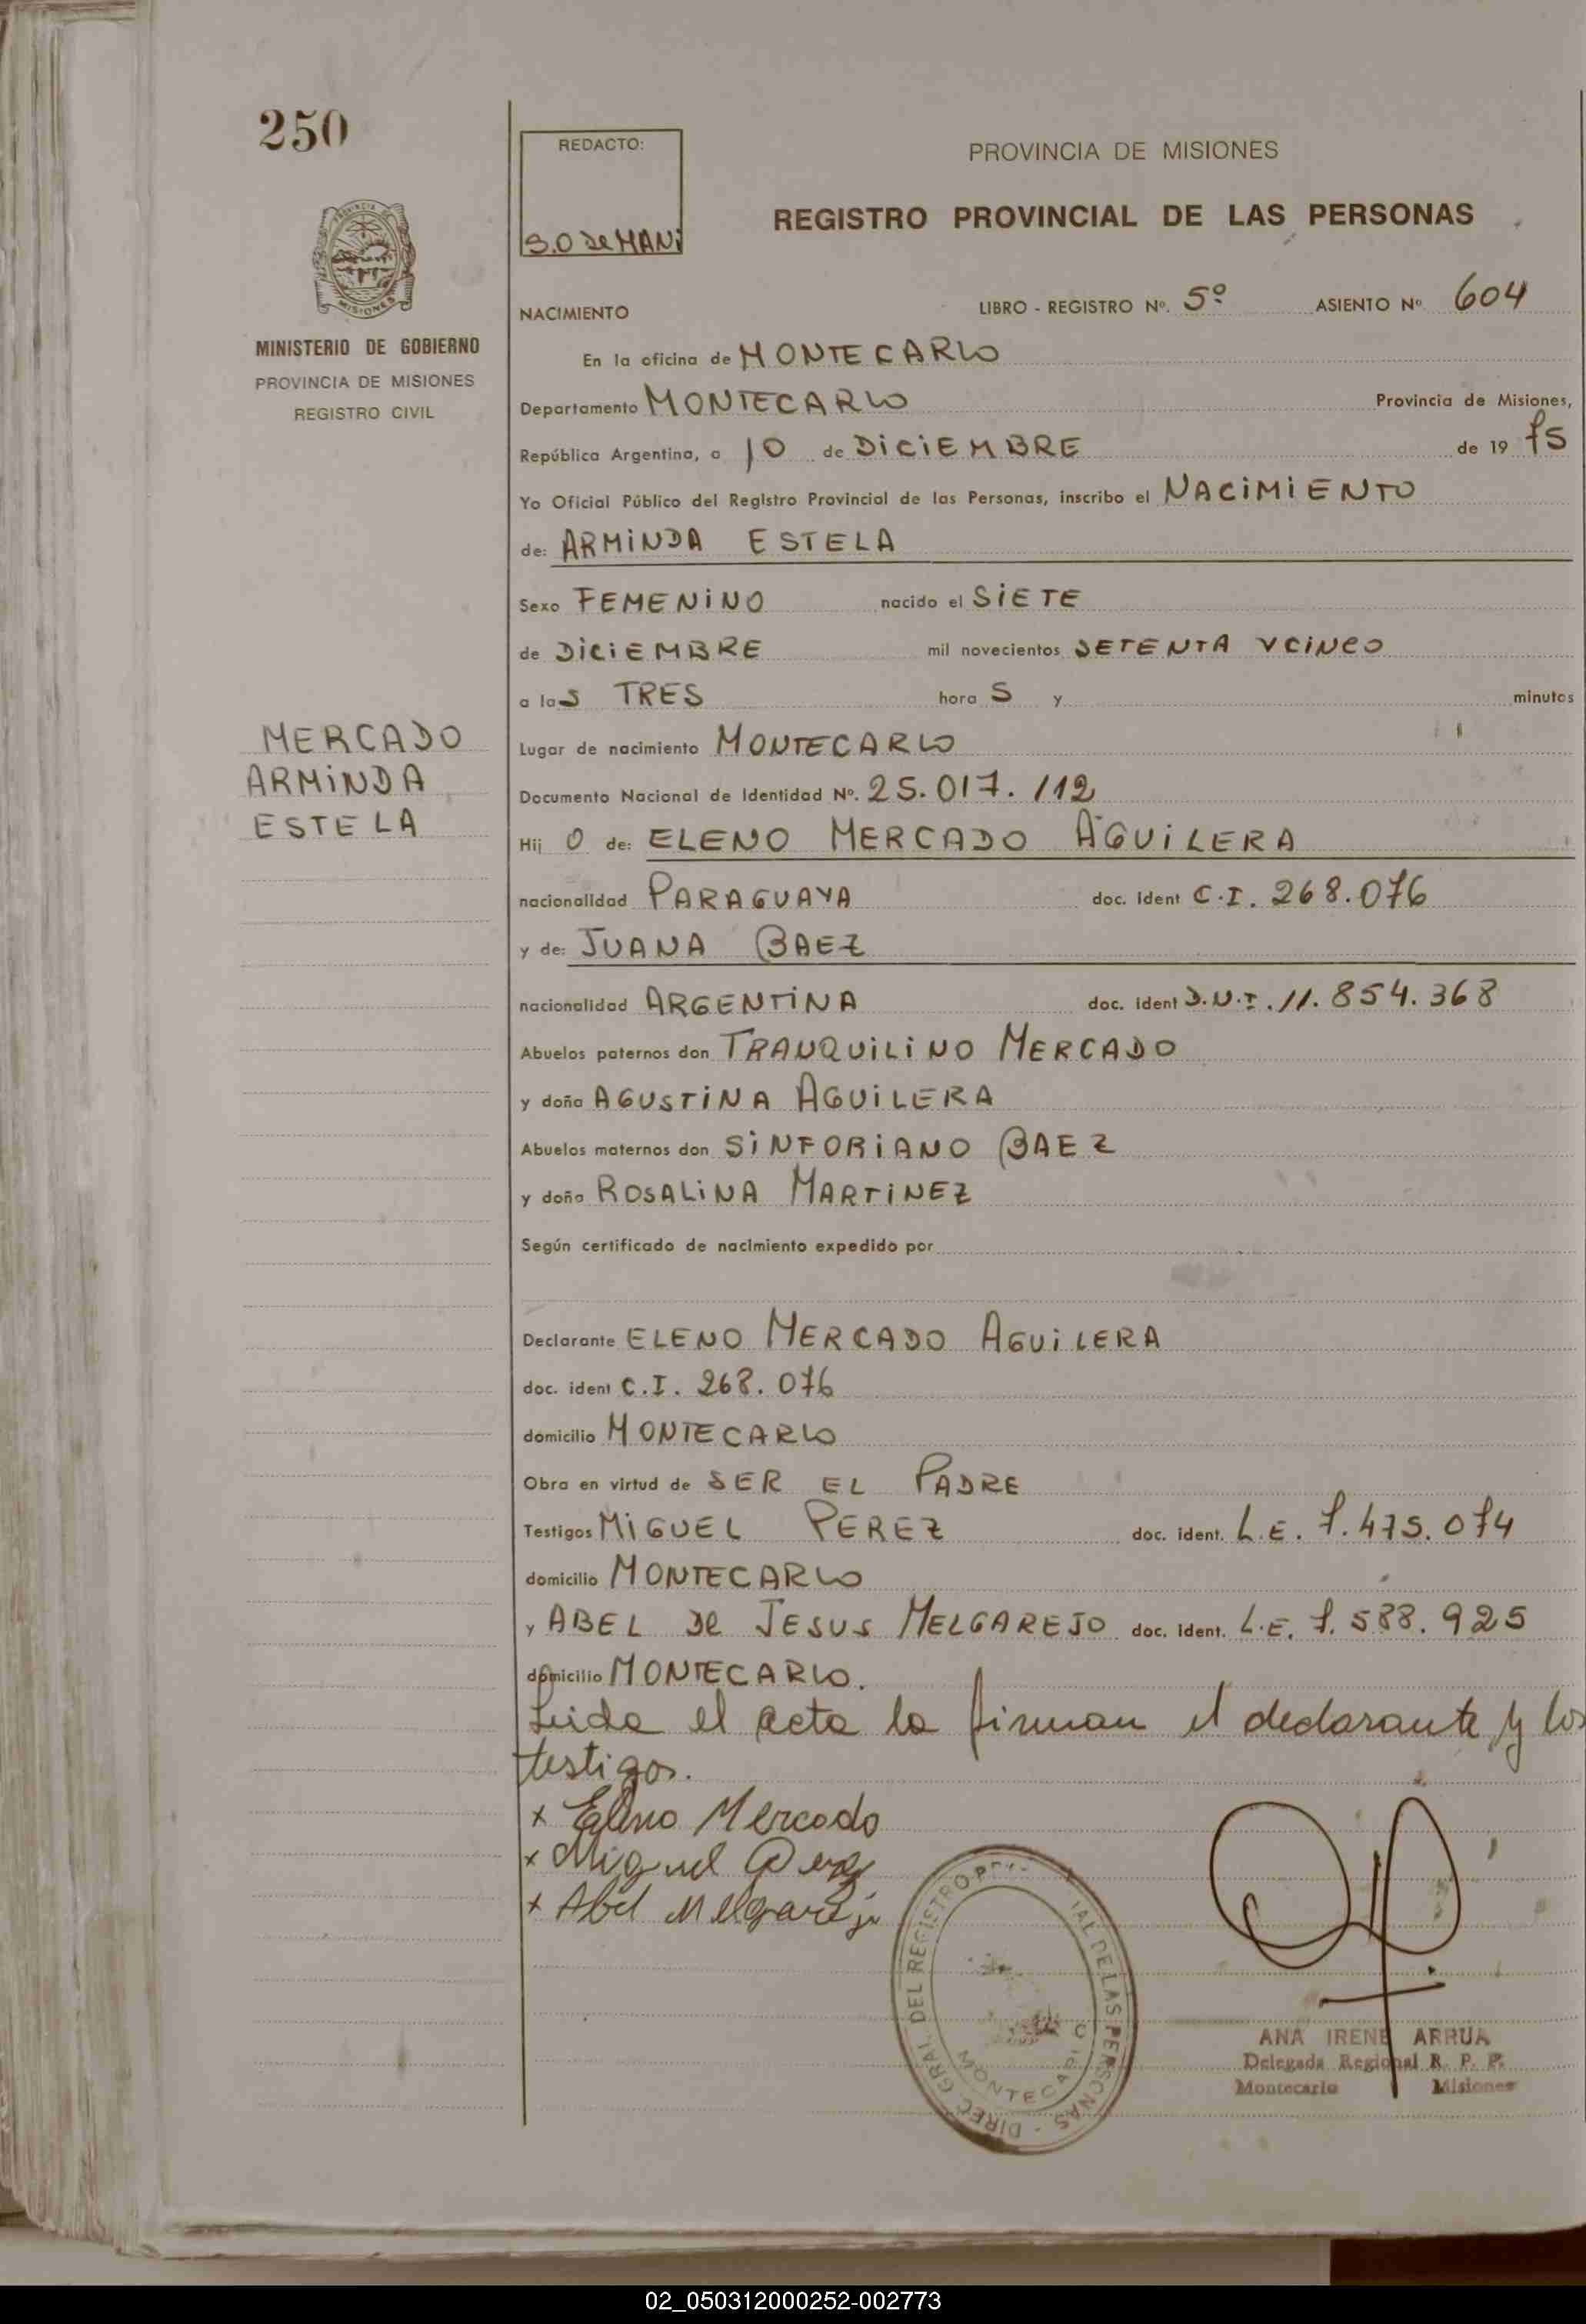 250
REDACTO:
S.O de MANi
PROVINCIA DE MISIONES
REGISTRO PROVINCIAL DE LAS PERSONAS
PROVINCIA DE
MISIONES
MINISTERIO DE GOBIERNO
PROVINCIA DE MISIONES
REGISTRO CIVIL
NACIMIENTO LIBRO - REGISTRO Nº. 5º ASIENTO Nº 604
En la oficina de MONTECARLO
Departamento MONTECARLO Provincia de Misiones,
República Argentina, a 10 de DiCiEMBRE de 19 75
Yo Oficial Público del Registro Provincial de las Personas, inscribo el NACiMiENTO
de: ARMiNDA ESTELA
Sexo FEMENiNO nacido el SiETE
de DiCiEMBRE mil novecientos SETENTA Y CiNCO
a las TRES horas y minutos
MERCADO
ARMiNDA
ESTELA
Lugar de nacimiento MONTECARLO
Documento Nacional de Identidad Nº. 25.017.112
Hij O de: ELENO MERCADO AGUiLERA
nacionalidad PARAGUAYA doc. ident C.I. 268.076
y de: JUANA BAEZ
nacionalidad ARGENTiNA doc. ident D.N.I. 11.854.368
Abuelos paternos don TRANQUiLiNO MERCADO
y doña AGUSTiNA AGUiLERA
Abuelos maternos don SiNFORiANO BAEZ
y doña ROSALiNA MARTiNEZ
Según certificado de nacimiento expedido por
Declarante ELENO MERCADO AGUiLERA
doc. ident C.I. 268.076
domicilio MONTECARLO
Obra en virtud de SER EL PADRE
Testigos MiGUEL PEREZ doc. ident. L.E. 7.475.074
domicilio MONTECARLO
y ABEL De JESUS MELGAREJO doc. ident. L.E. 7.588.925
domicilio MONTECARLO.
Leida el acta la firman el declarante y los
testigos.
x Eleno Mercado
x Miguel Perez
x Abel Melgarejo
DIREC. GRAL. DEL REGISTRO IAL DE LAS PERSONAS -
MONTECARLO
ANA IRENE ARRUA
Delegada Regional R. P. P.
Montecarlo Misiones
02_050312000252-002773